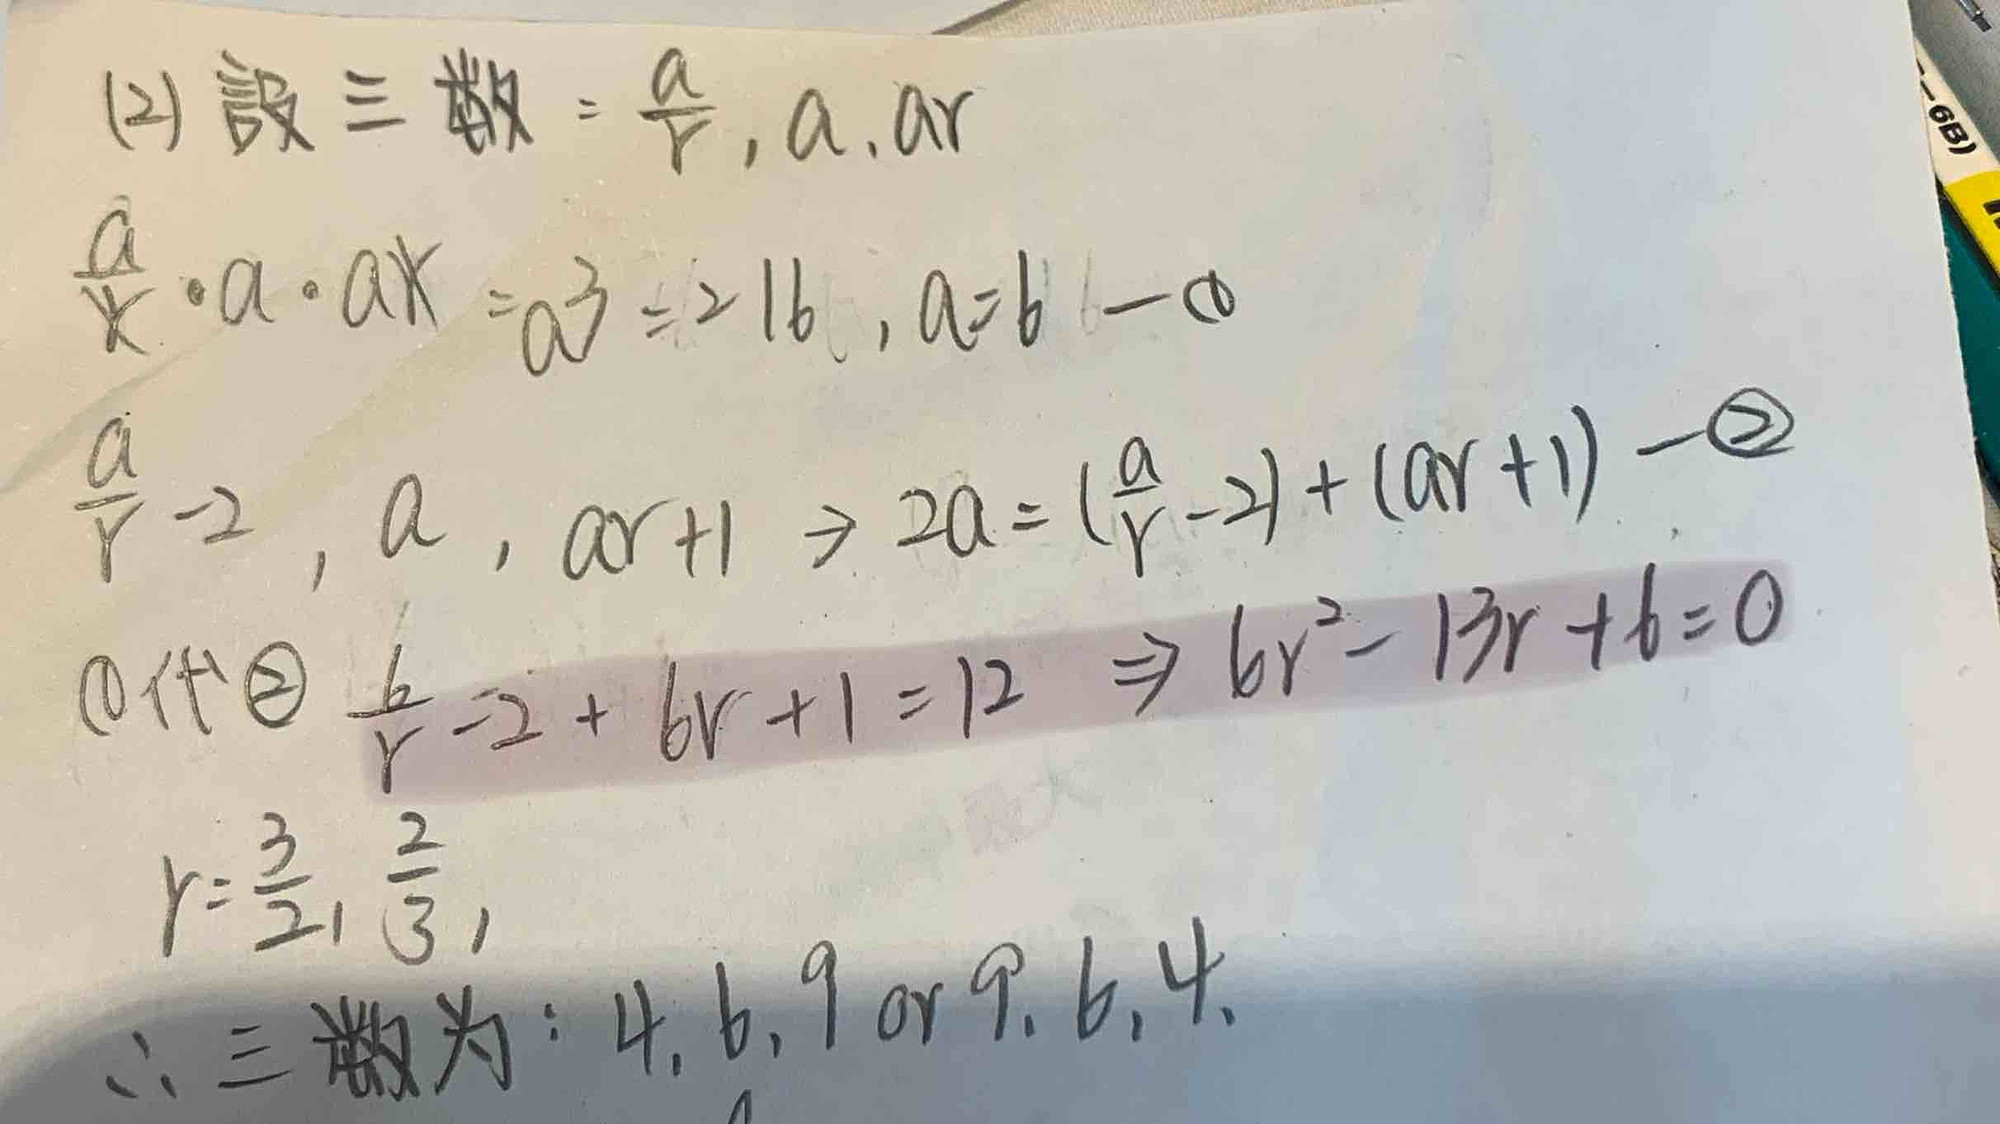 (2) 設三數 = a/r , a , ar
a/r · a · ar = a³ = 216 , a=6 —①
a/r -2 , a , ar+1 → 2a = (a/r -2) + (ar+1) —②
①代② 6/r -2 + 6r +1 = 12 ⇒ 6r² - 13r + 6 = 0
r = 3/2 , 2/3 ,
∴ 三數为 : 4, 6, 9 or 9, 6, 4.
-6B)